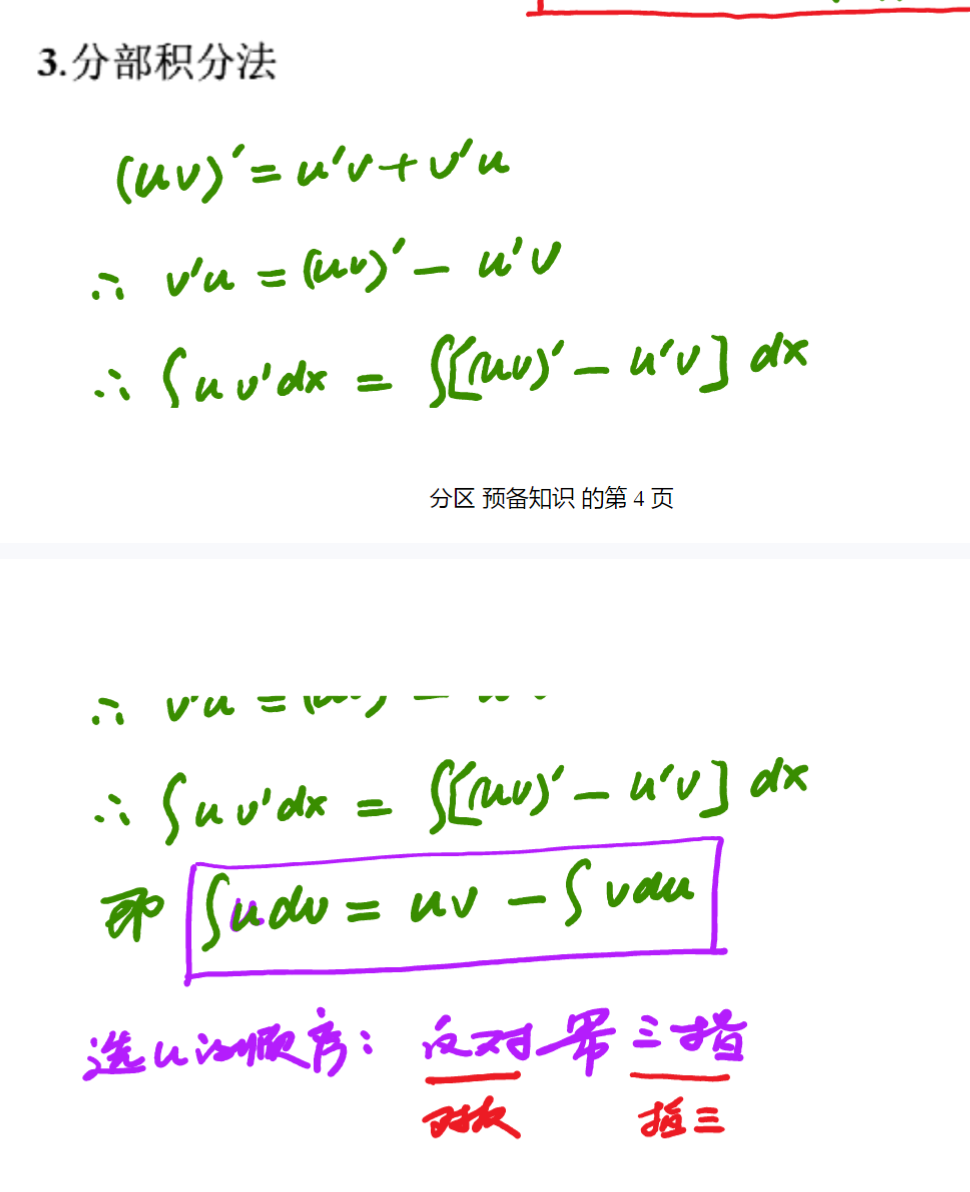 3.分部积分法
(uv)′=u′v+v′u
∴ v′u=(uv)′-u′v
∴ ∫uv′dx=∫[(uv)′-u′v]dx
分区 预备知识 的第 4 页
∴ v′u=(uv)′-u′v
∴ ∫uv′dx=∫[(uv)′-u′v]dx
即 ∫udv=uv-∫vdu
选u的顺序：反对幂三指
对反 指三